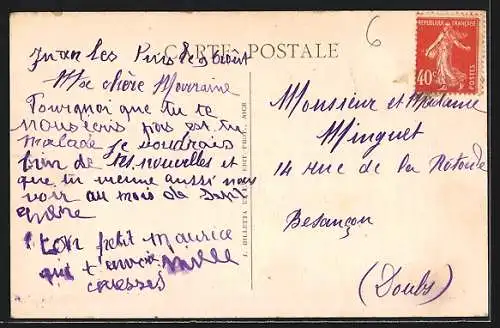 CARTE POSTALE
6
REPUBLIQUE FRANÇAISE
40c
POSTES
Juan les Pins le 9 Août
Ma chère Marraine
Pourquoi que tu te
pas est tu
malade je voudrais
bien de tes nouvelles et
que tu vienne aussi nous
voir au mois de
ton petit Maurice
qui t'envoie mille
caresses
J. GILLETTA NICE
Monsieur et Madame
Minguet
14 rue de la Rotonde
Besançon
(Doubs)